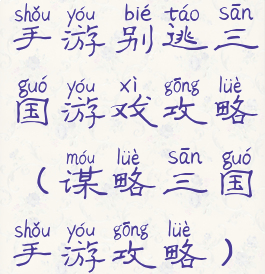 shǒu yóu bié táo sān
手游别逃三
guó yóu xì gōng lüè
国游戏攻略
móu lüè sān guó
（谋略三国
shǒu yóu gōng lüè
手游攻略）